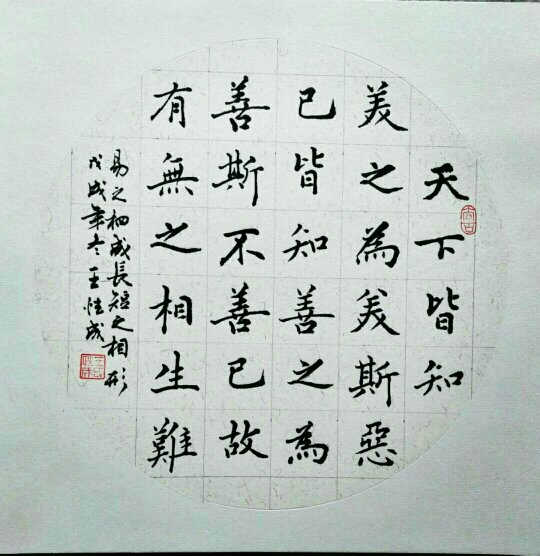 天下皆知
美之為美斯惡
已皆知善之為
善斯不善已故
有無之相生難
易之相成長短之相形
戊戌年冬王性成